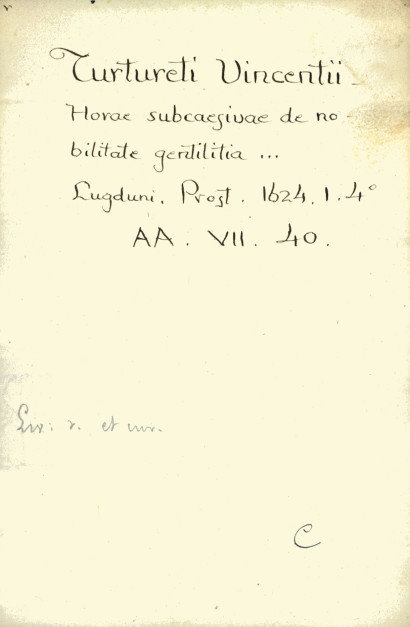 Turtureti Vincentii –
Horae subcaesivae de no-
bilitate gentilitia ...
Lugduni. Prost. 1624. 1. 4°
AA. VII. 40.
Liv: r. et cur.
C